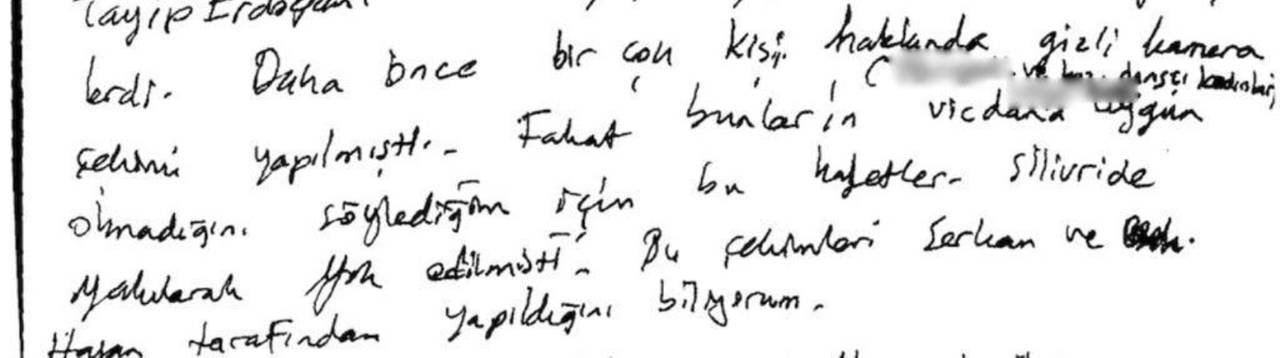 Tayip Erdoğan
lerdi. Daha önce bir çok kişi hakkında gizli kamera
( ve bazı dansçı kadınlar)
çekimi yapılmıştı. Fakat bunların vicdana uygun
olmadığını söylediğim için bu kasetler. Silivride
yakılarak yok edilmişti. Bu çekimleri Serkan ve
Hasan tarafından yapıldığını biliyorum.